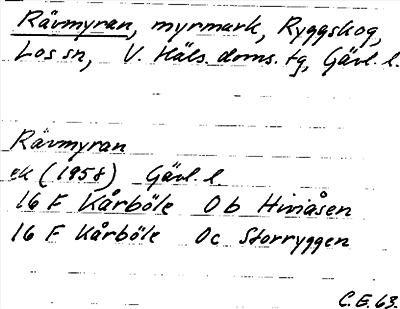 Rävmyran, myrmark, Ryggskog,
Los sn, V. Häls. doms. tg, Gävl. l.
Rävmyran
ek (1958) Gävl. l.
16 F Kårböle 0 b Hiviåsen
16 F Kårböle 0c Storryggen
C.E. 63.